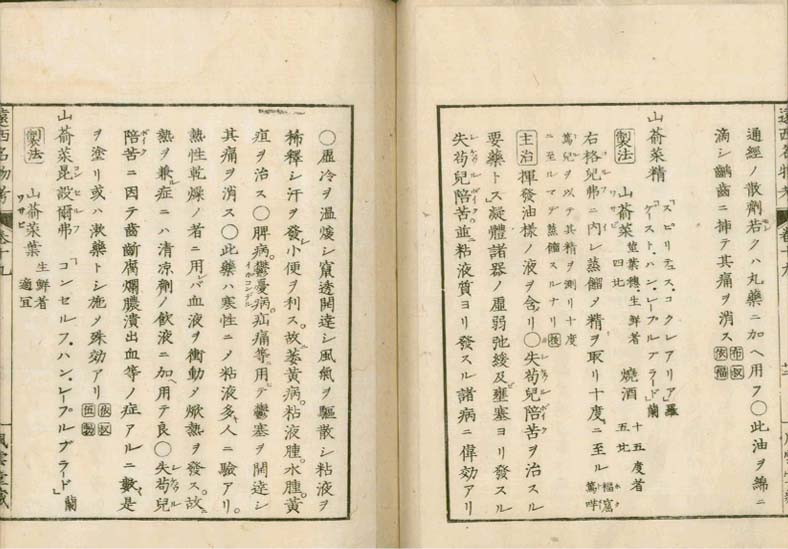 通經ノ散劑若クハ丸藥ニ加ヘ用フ〇此油ヲ綿ニ
滴シ齲齒ニ挿テ其痛ヲ消ス
山萮菜精「スピリテュス・コクレアリア」羅
「ゲイスト・ハン・レープルブラード」蘭
製法 山萮菜 莖葉穗生鮮者 四比 燒酒 十五度者 五比
右格兒弗ニ内レ蒸餾メ精ヲ取リ十度ニ至ル
篤兒ヲ以テ其精ヲ測リ十度
ニ至ルマデ蒸餾スルナリ
主治 揮發油樣ノ液ヲ含リ〇失苟兒陪苦ヲ治スル
要藥トス凝體諸器ノ虛弱弛緩及壅塞ヨリ發スル
失苟兒陪苦並ニ粘液質ヨリ發スル諸病ニ偉効アリ
〇虛冷ヲ溫煖シ竄透開達シ風氣ヲ驅散シ粘液ヲ
稀釋シ汗ヲ發シ小便ヲ利ス故ニ萎黃病粘液腫水腫黃
疸ヲ治ス〇脾病鬱憂病疝痛等ニ用テ鬱塞ヲ開達シ
其痛ヲ消ス〇此藥ハ寒性ニメ粘液多キ人ニ驗アリ
熱性乾燥ノ者ニ用レバ血液ヲ衝動メ焮熱ヲ發ス故ニ
熱ヲ兼ル症ニハ清涼劑ノ飲液ニ加ヘ用テ良〇失苟兒
陪苦ニ因テ齒齗腐爛膿潰出血等ノ症アルニ數是
ヲ塗リ或ハ漱藥トシ施メ殊効アリ
山萮菜昆設爾弗「コンセルフ・ハン・レープルブラード」蘭
製法 山萮菜葉 生鮮者 適宜
遠西名物考 卷十九
風雲堂藏